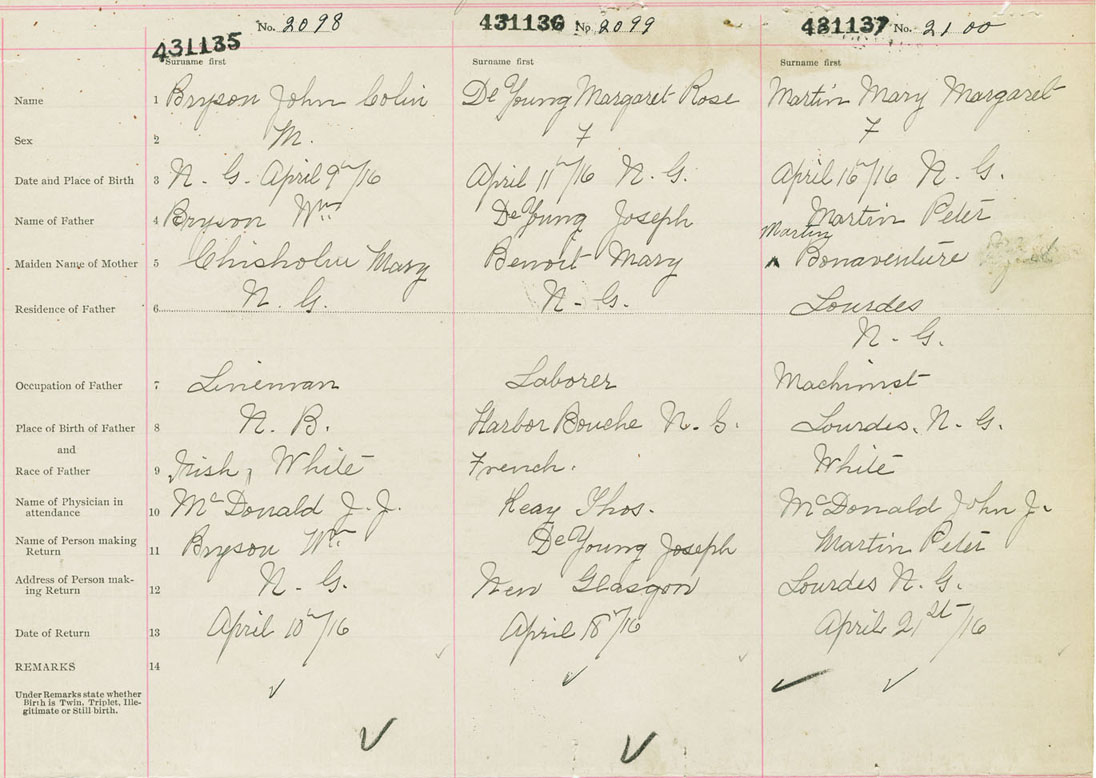 431135 No. 2098 431136 No 2099 431137 No. 2100
Surname first Surname first Surname first
Name 1 Bryson John Colin De Young Margaret Rose Martin Mary Margaret
Sex 2 M. F F
Date and Place of Birth 3 N. G. April 9th/16 April 11th/16 N. G. April 16th/16 N. G.
Name of Father 4 Bryson Wm De Young Joseph Martin Peter
Martin
Maiden Name of Mother 5 Chisholm Mary Benoit Mary ^ Bonaventure
Residence of Father 6 N. G. N. G. Lourdes
N. G.
Occupation of Father 7 Lineman Laborer Machinist
Place of Birth of Father 8 N. B. Harbor Bouche N. S. Lourdes. N. G.
and
Race of Father 9 Irish, White French. White
Name of Physician in
attendance 10 McDonald J. J. Keay Thos. McDonald John J.
Name of Person making
Return 11 Bryson Wm De Young Joseph Martin Peter
Address of Person mak-
ing Return 12 N. G. New Glasgow Lourdes N. G.
Date of Return 13 April 10th/16 April 18th/16 April 21st/16
REMARKS 14
Under Remarks state whether
Birth is Twin, Triplet, Ille-
gitimate or Still birth.